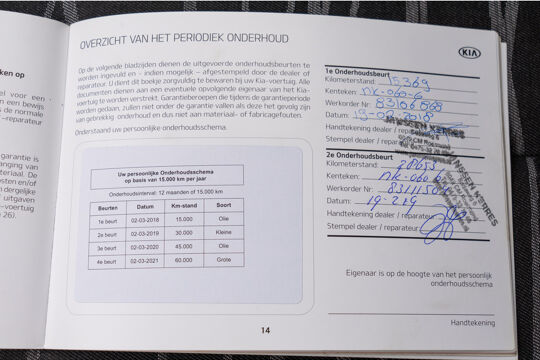 ken op
el voor een
n een bewijs
s de normale
-reparateur
garantie is
anging van
ateriaal. De
ten en/of
n dergelijke
uitgaven
-voertuig
26).
OVERZICHT VAN HET PERIODIEK ONDERHOUD
Op de volgende bladzijden dienen de uitgevoerde onderhoudsbeurten te
worden ingevuld en - indien mogelijk – afgestempeld door de dealer of
reparateur. U dient dit boekje zorgvuldig te bewaren bij uw Kia-voertuig. Alle
documenten dienen aan een eventuele opvolgende eigenaar van het Kia-
voertuig te worden verstrekt. Garantieberoepen die tijdens de garantieperiode
worden gedaan, zullen niet onder de garantie vallen als deze het gevolg zijn
van gebrekkig onderhoud en dus niet aan materiaal- of fabricagefouten.
Onderstaand uw persoonlijke onderhoudsschema.
Uw persoonlijke Onderhoudsschema
op basis van 15.000 km per jaar
Onderhoudsinterval: 12 maanden of 15.000 km
Beurten Datum Km-stand Soort
1e beurt 02-03-2018 15.000 Olie
2e beurt 02-03-2019 30.000 Kleine
3e beurt 02-03-2020 45.000 Olie
4e beurt 02-03-2021 60.000 Grote
14
KIA
1e Onderhoudsbeurt
Kilometerstand: 15369
Kenteken: NK-060-G
Werkorder Nr: 83106568
Datum: 2018
Handtekening dealer / reparateur
Stempel dealer / reparateur
JANSSEN KERRES
2e Onderhoudsbeurt
Kilometerstand:
Kenteken: NK-060-G
Werkorder Nr:
Datum: 19-2-19
Handtekening dealer / reparateur:
Stempel dealer / reparateur:
JANSSEN KERRES
Eigenaar is op de hoogte van het persoonlijk
onderhoudsschema
Handtekening